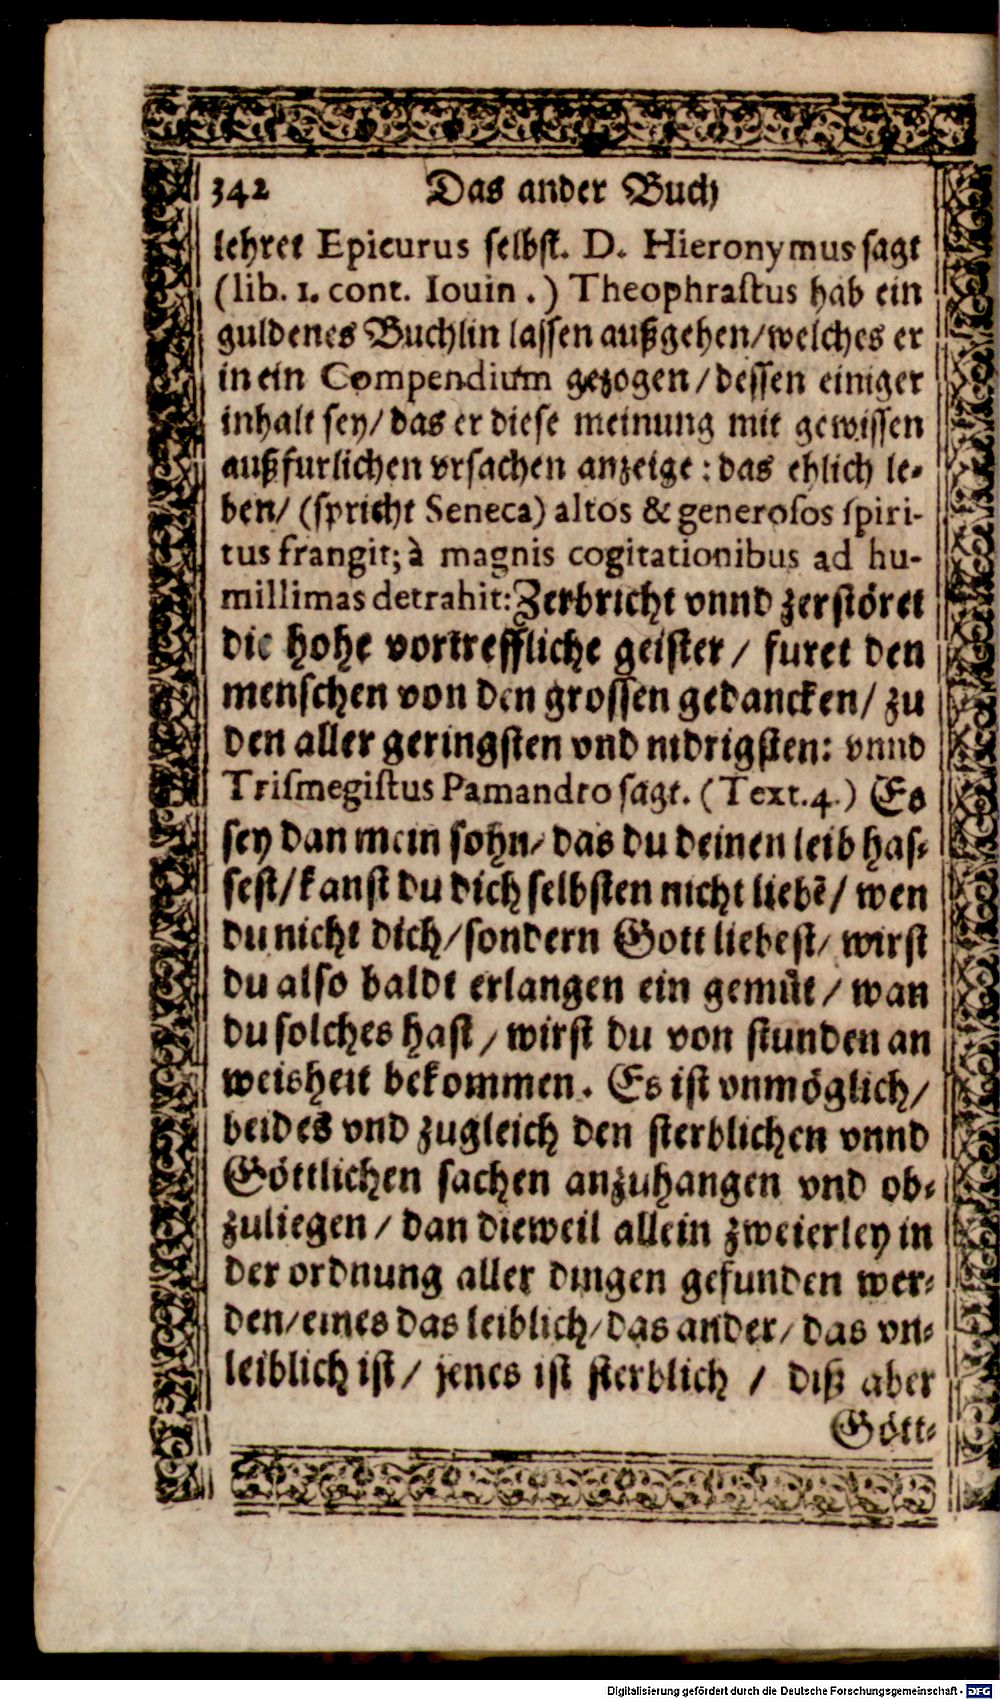 342 Das ander Buch
lehret Epicurus selbst. D. Hieronymus sagt
(lib. 1. cont. Iouin.) Theophrastus hab ein
guldenes Buchlin lassen außgehen/welches er
in ein Compendium gezogen/dessen einiger
inhalt sey/das er diese meinung mit gewissen
außfurlichen vrsachen anzeige: das ehlich le-
ben/ (spricht Seneca) altos & generosos spiri-
tus frangit; à magnis cogitationibus ad hu-
millimas detrahit: Zerbricht vnnd zerstöret
die hohe vortreffliche geister/ furet den
menschen von den grossen gedancken/ zu
den aller geringsten vnd nidrigsten: vnnd
Trismegistus Pamandro sagt. (Text. 4.) Es
sey dan mein sohn/das du deinen leib has-
sest/kanst du dich selbsten nicht liebē/ wen
du nicht dich/sondern Gott liebest/ wirst
du also baldt erlangen ein gemüt/ wan
du solches hast/ wirst du von stunden an
weisheit bekommen. Es ist vnmöglich/
beides vnd zugleich den sterblichen vnnd
Göttlichen sachen anzuhangen vnd ob-
zuliegen/ dan dieweil allein zweierley in
der ordnung aller dingen gefunden wer-
den/eines das leiblich/das ander/ das vn-
leiblich ist/ jenes ist sterblich / diß aber
Gött-
Digitalisierung gefördert durch die Deutsche Forschungsgemeinschaft - DFG